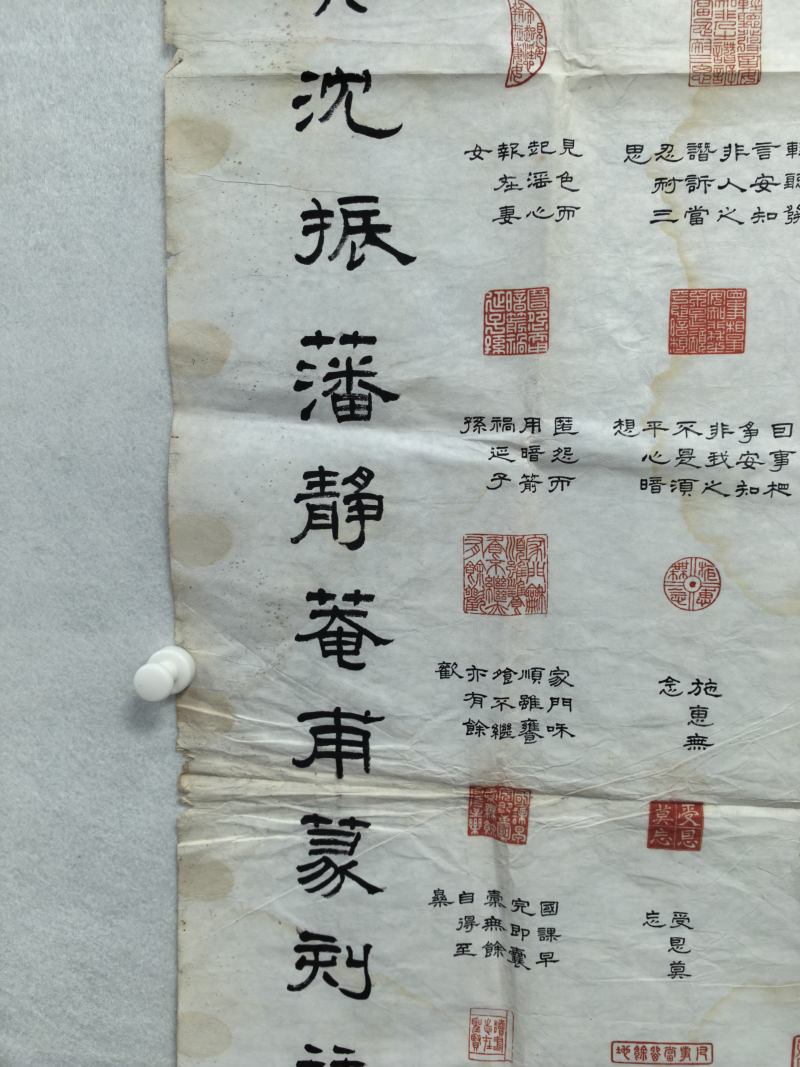 輕聽發
言安知
非人之
譖訴當
忍耐三
思
囙事相
爭安知
非我之
不是須
平心暗
想
施惠無
念
受恩莫忘
受恩莫
忘
凡事當留餘地
見色而
起淫心
報在妻
女
匿怨而
用暗箭
禍延子
孫
家門咊
順雖饔
飧不繼
亦有餘
歡
國課早
完即囊
橐無餘
自得至
樂
讀書
志在
聖賢
沈振藩靜菴甫篆刻